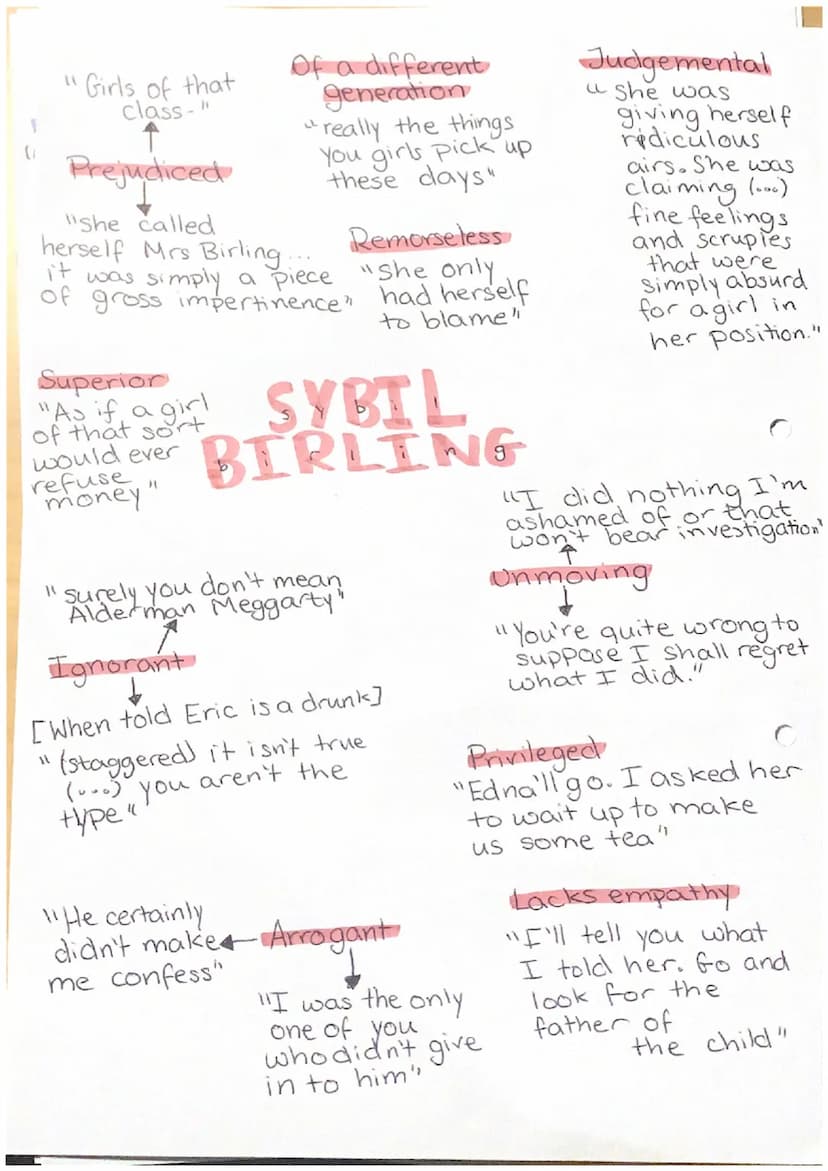 "Girls of that
class-"
Prejudiced
"She called
herself Mrs Birling...
it was simply a piece
of gross impertinence"
Of a different
generation
"really the things
you girls pick up
these days"
Remorseless
"she only
had herself
to blame"
Judgemental
"She was
giving herself
ridiculous
airs. She was
claiming (...)
fine feelings
and scruples
that were
simply absurd
for a girl in
her position."
Superior
"As if a girl
of that sort
would ever
refuse
money"
SYBIL
sybil
BIRLING
birling
"I did nothing I'm
ashamed of or that
won't bear investigation"
Unmoving
"You're quite wrong to
suppose I shall regret
what I did."
"surely you don't mean
Alderman Meggarty"
Ignorant
[When told Eric is a drunk]
"(staggered) it isn't true
(...) you aren't the
type"
Privileged
"Edna'll go. I asked her
to wait up to make
us some tea"
"He certainly
didn't make
me confess"
Arrogant
"I was the only
one of you
who didn't give
in to him"
Lacks empathy
"I'll tell you what
I told her. Go and
look for the
father of
the child"